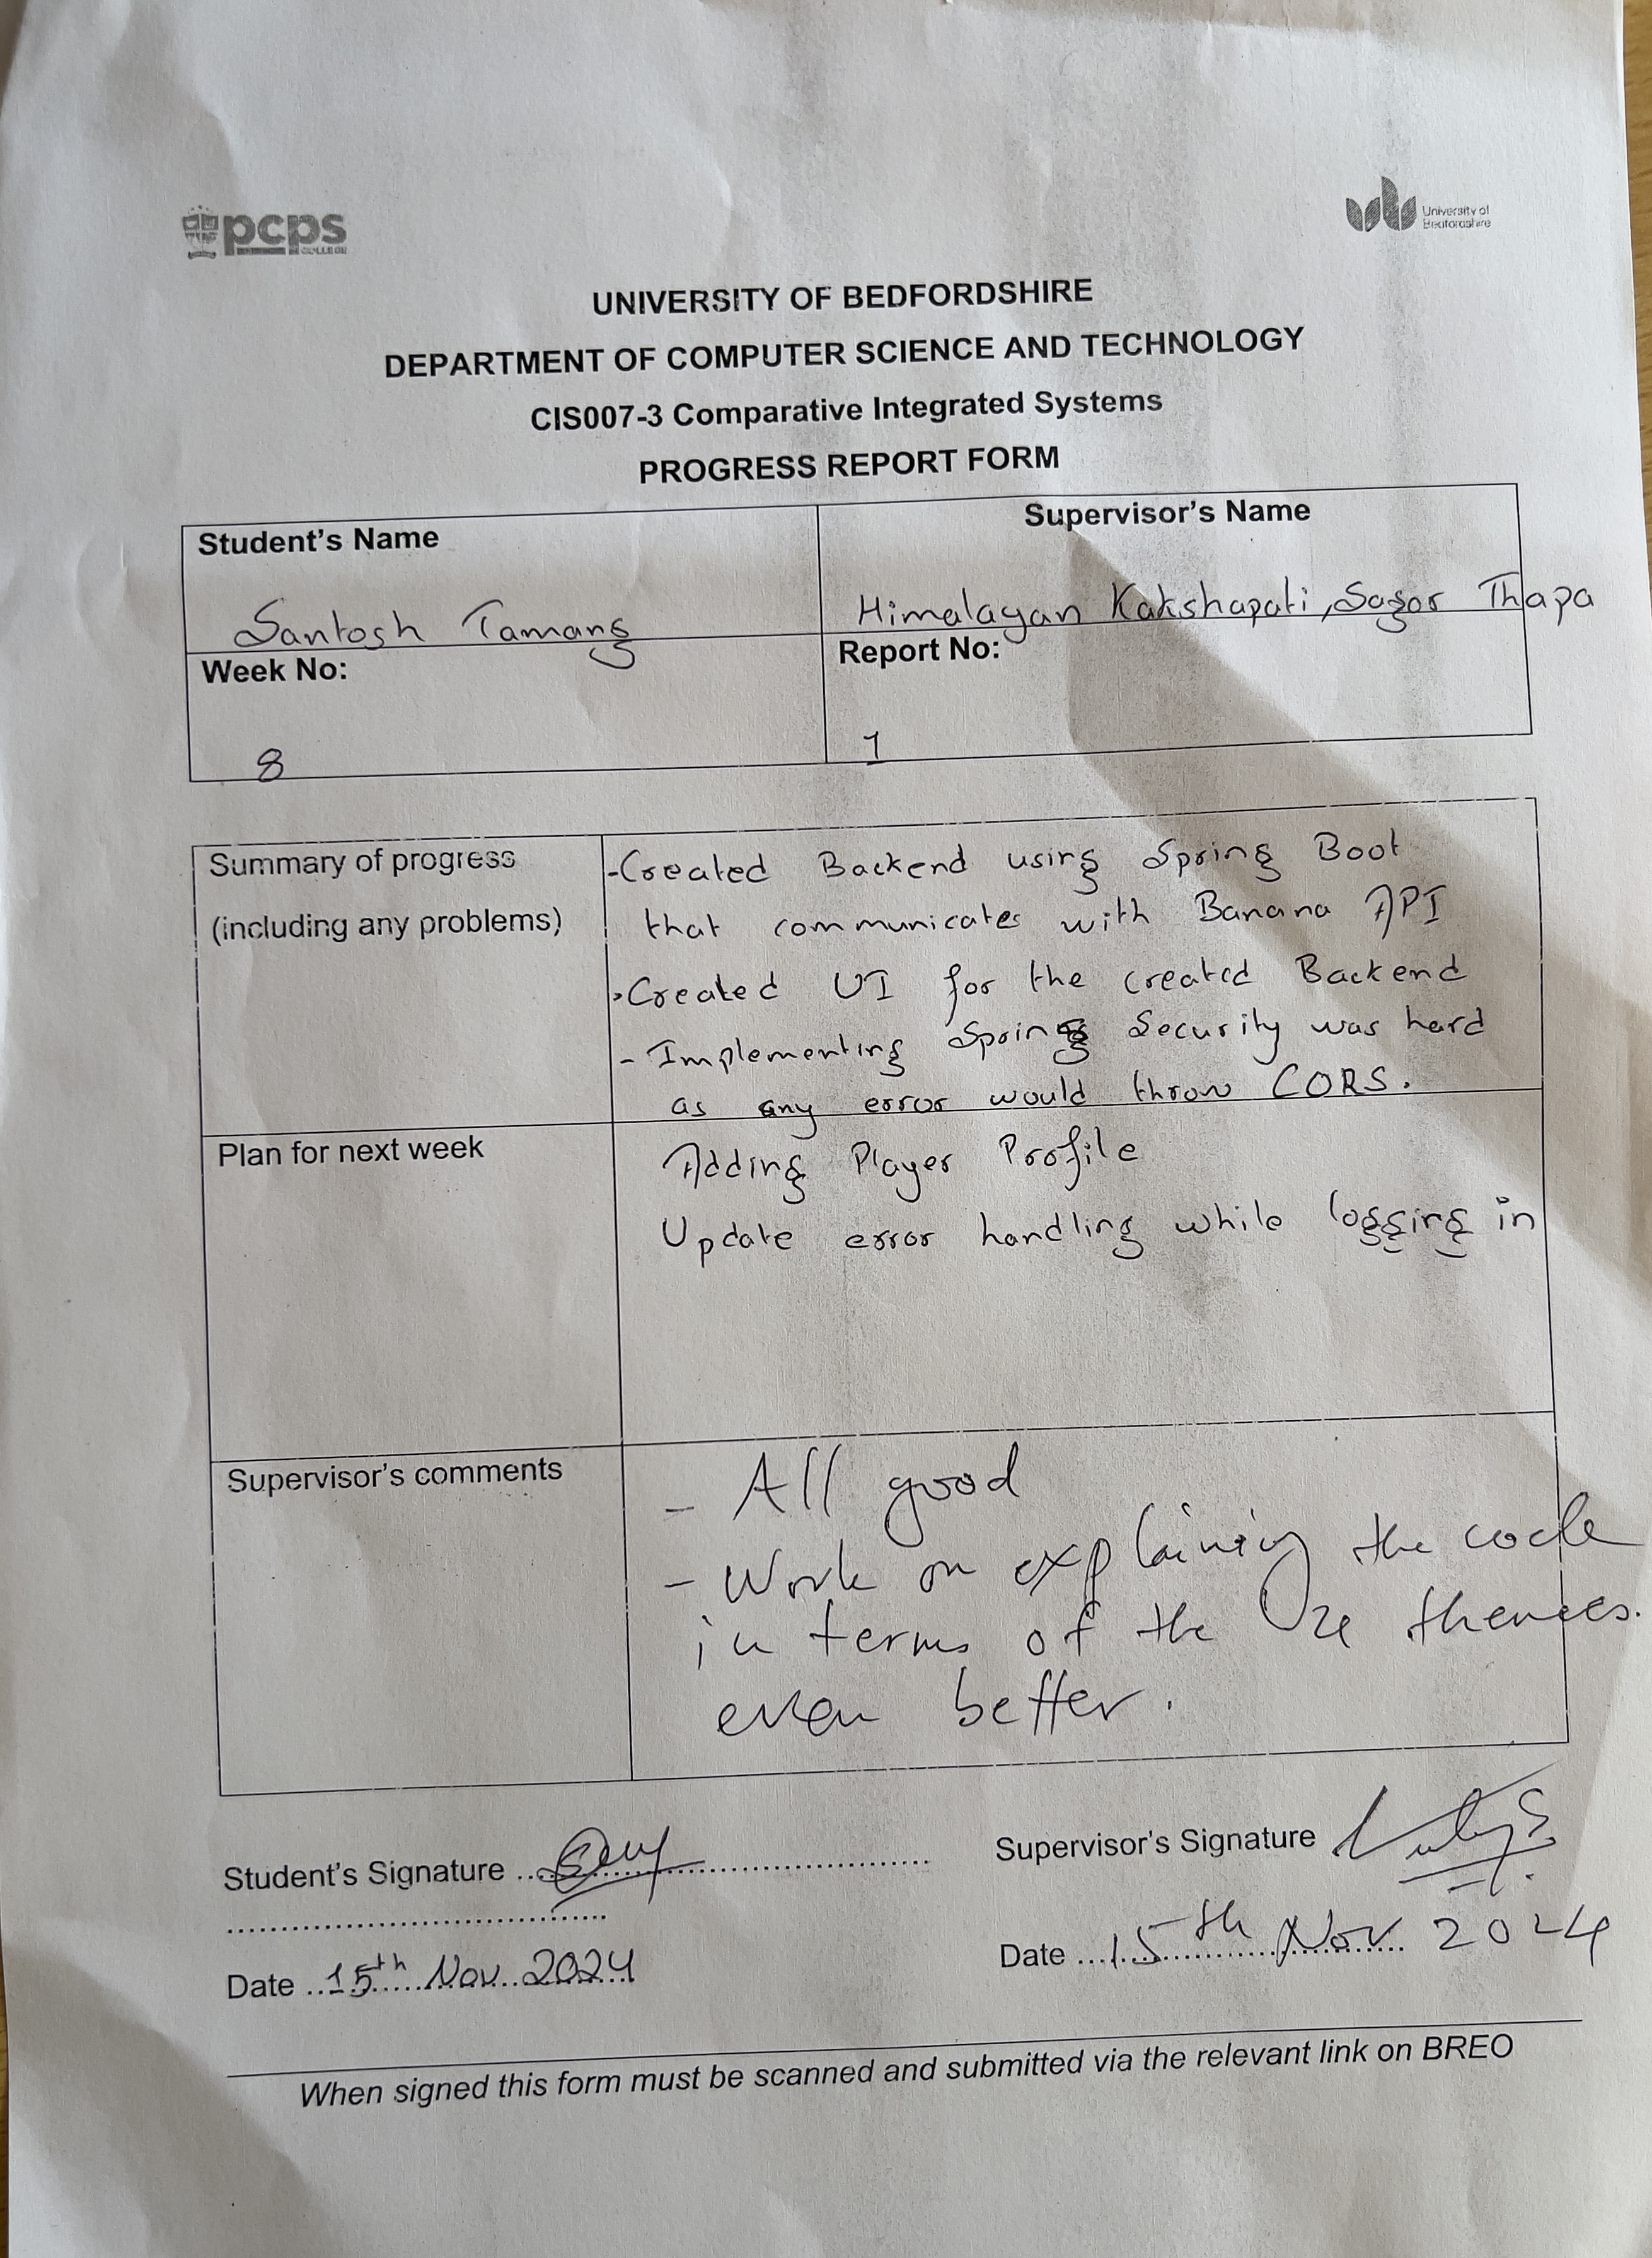 pcps
COLLEGE
University of
Bedfordshire
UNIVERSITY OF BEDFORDSHIRE
DEPARTMENT OF COMPUTER SCIENCE AND TECHNOLOGY
CIS007-3 Comparative Integrated Systems
PROGRESS REPORT FORM
Student's Name
Supervisor's Name
Santosh Tamang
Himalayan Kakshapati, Sagar Thapa
Week No:
Report No:
8
1
Summary of progress
(including any problems)
-Created Backend using Spring Boot
that communicates with Banana API
-Created UI for the created Backend
- Implementing Spring Security was hard
as any error would throw CORS.
Plan for next week
Adding Player Profile
Update error handling while logging in
Supervisor's comments
- All good
- Work on explaining the code
in terms of the themes.
even better.
Student's Signature
Supervisor's Signature
Date 15th Nov 2024
Date 15th Nov 2024
When signed this form must be scanned and submitted via the relevant link on BREO